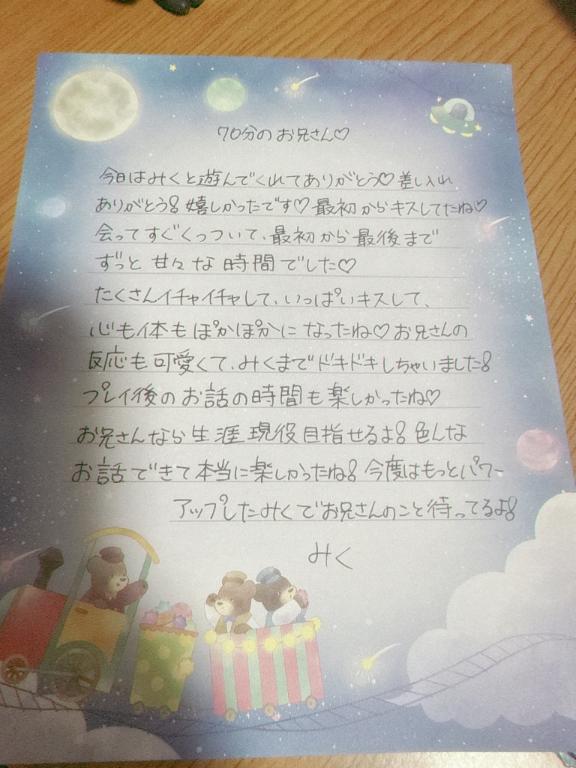 70分のお兄さん♡
今日はみくと遊んでくれてありがとう♡差し入れ
ありがとう!嬉しかったです♡最初からキスしてたね♡
会ってすぐくっついて、最初から最後まで
ずっと甘々な時間でした♡
たくさんイチャイチャして、いっぱいキスして、
心も体もぽかぽかになったね♡お兄さんの
反応も可愛くて、みくまでドキドキしちゃいました!
プレイ後のお話の時間も楽しかったね♡
お兄さんなら生涯現役目指せるよ!色んな
お話できて本当に楽しかったね!今度はもっとパワー
アップしたみくでお兄さんのこと待ってるよ!
みく